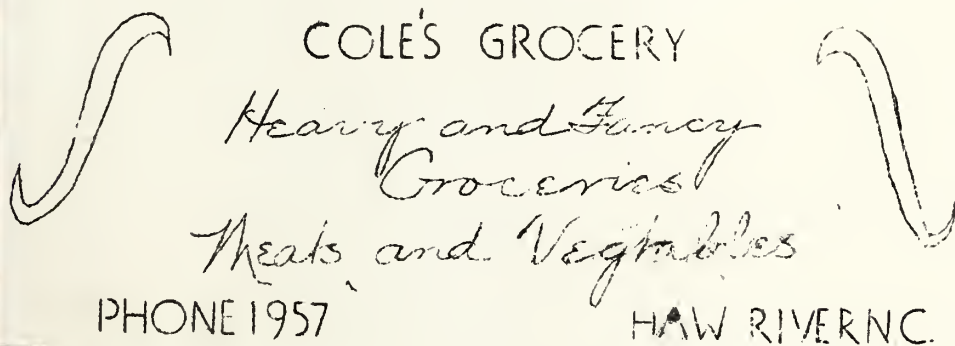 COLE'S GROCERY
Heavy and Fancy
Groceries
Meats and Vegtables
PHONE 1957 HAW RIVER N.C.